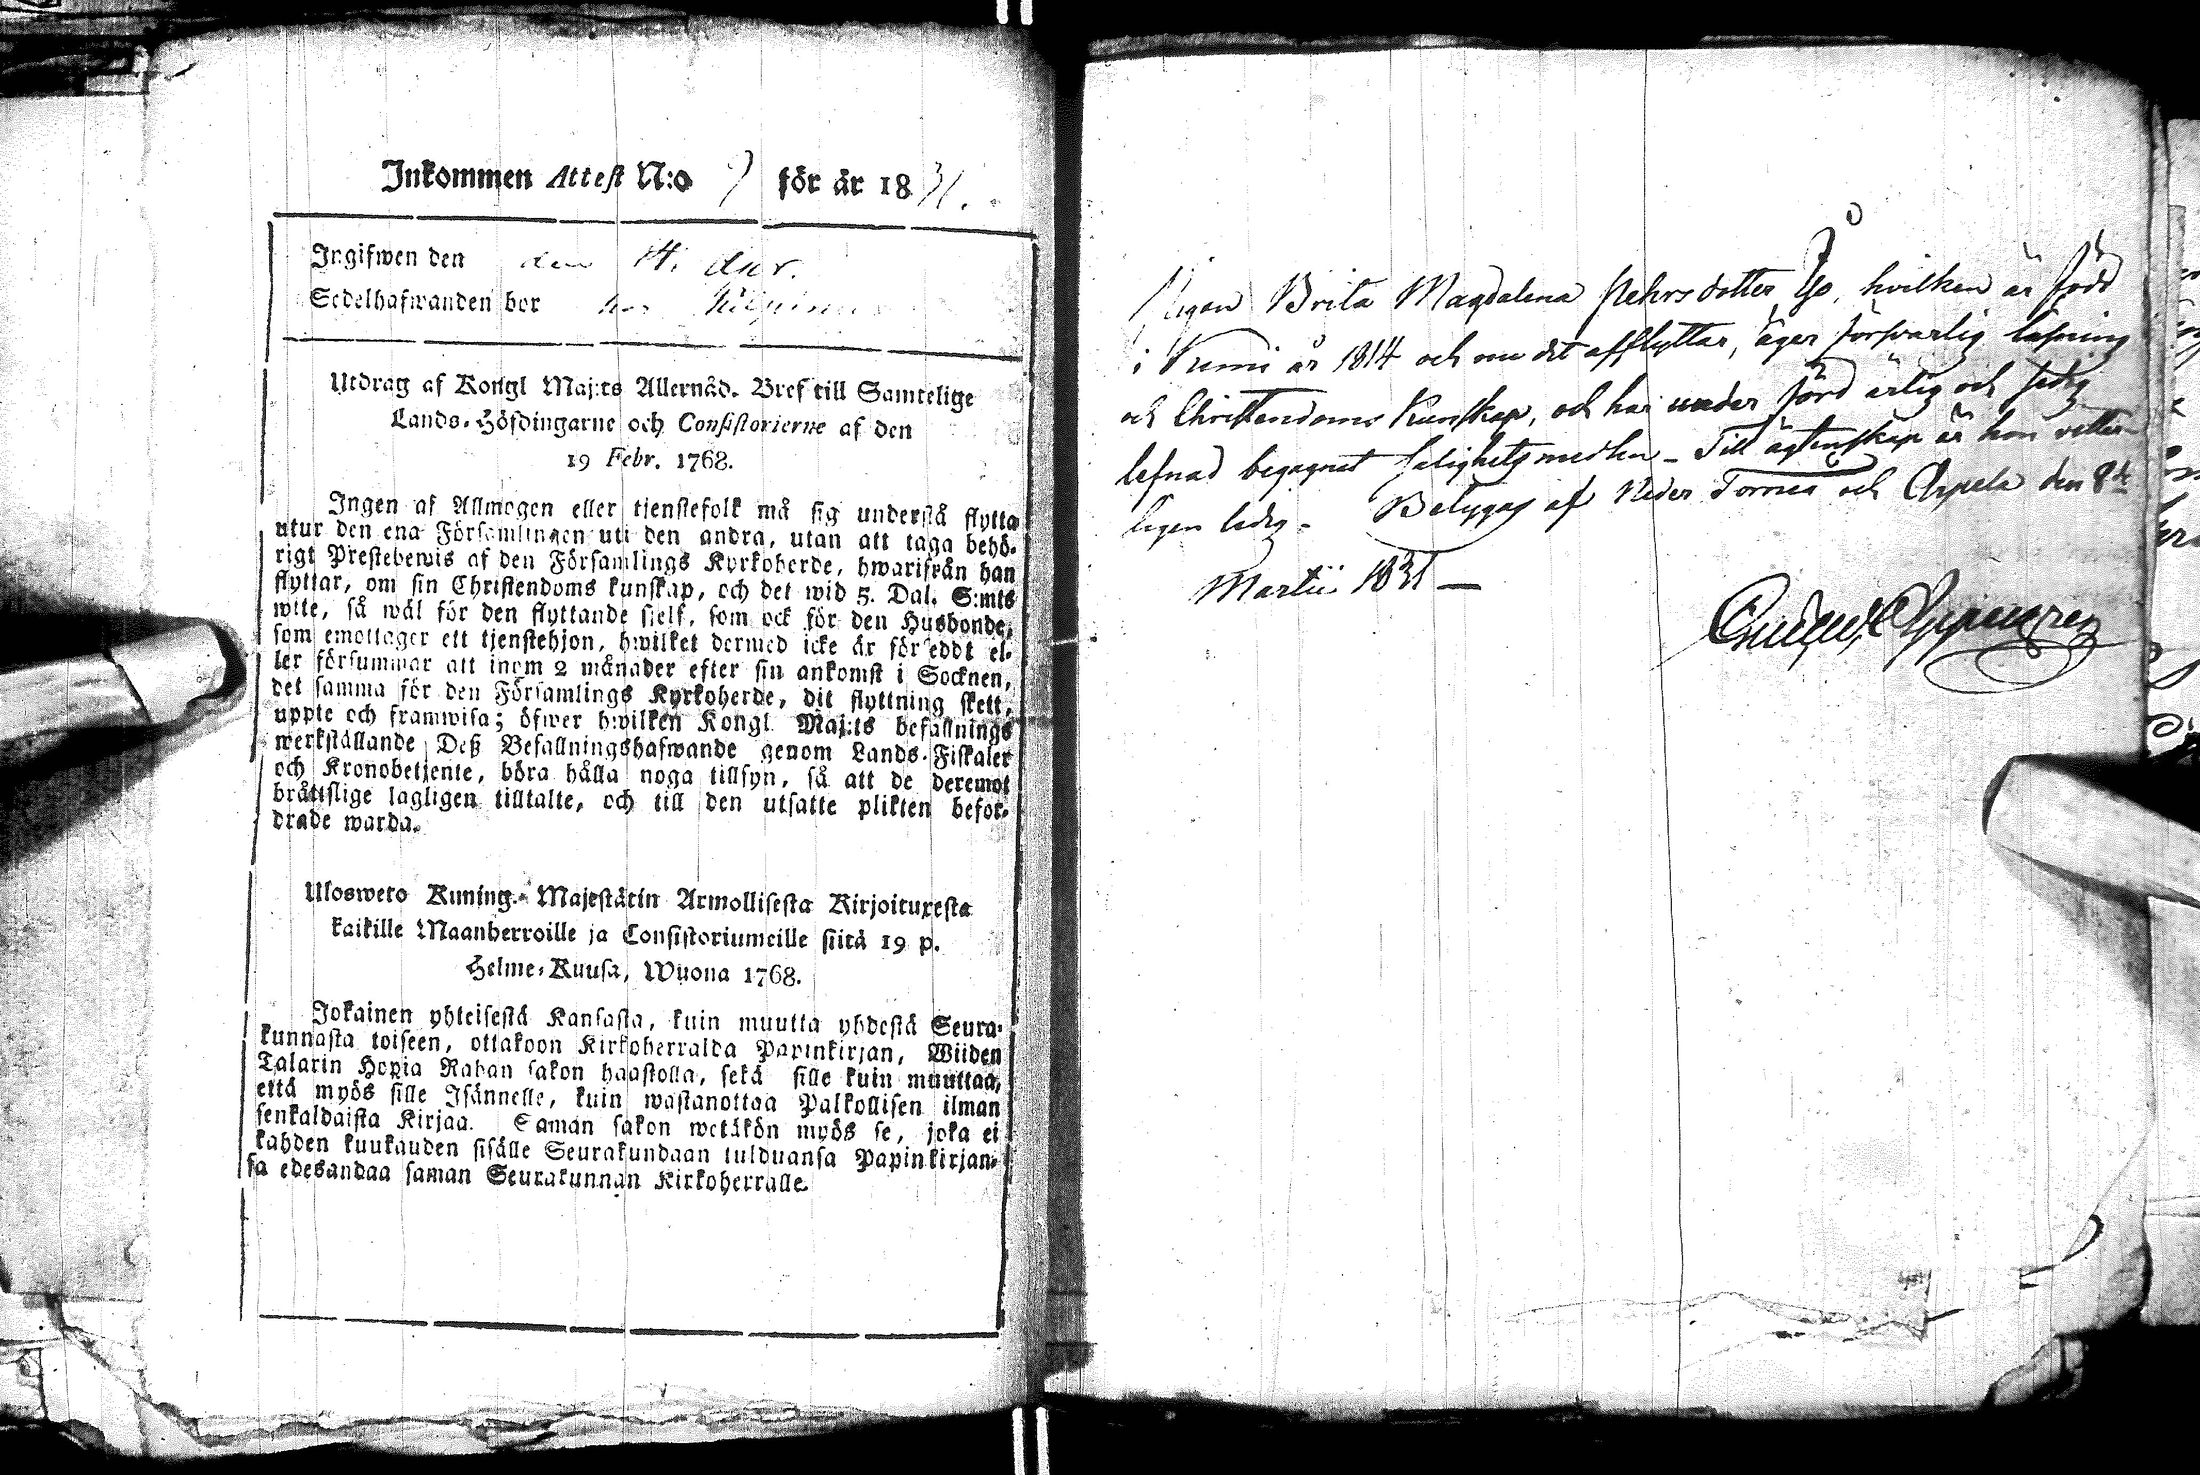 Inkommen Attest N:o 9 för år 1831.
Ingifwen den den 14 Apr.
Sedelhafwanden bor hos
Utdrag af Kongl Maj:ts Allernåd. Bref till Samtelige
Lands-Höfdingarne och Consistorierne af den
19 Febr. 1768.
Ingen af Allmogen eller tjenstefolk må sig understå flytta
utur den ena Församlingen uti den andra, utan att taga behö-
rigt Prestebewis af den Församlings Kyrkoherde, hwarifrån han
flyttar, om sin Christendoms kunskap, och det wid 5. Dal. S:mts
wite, så wäl för den flyttande sielf, som ock för den Husbonde,
som emottager ett tjenstehjon, hwilket dermed icke är förseddt el-
ler försummar att inom 2 månader efter sin ankomst i Socknen,
det samma för den Församlings Kyrkoherde, dit flyttning skett,
uppte och framwisa; öfwer hwilken Kongl Maj:ts befallnings
werkställande Deß Befallningshafwande genom Lands-Fiskaler
och Kronobetjente, böra hålla noga tillsyn, så att de deremot
bråttslige lagligen tilltalte, och till den utsatte plikten befor-
drade warda.
Ulosweto Kuning. Majestätin Armollisesta Kirjoituxesta
kaikille Maanherroille ja Consistoriumeille siitä 19 p.
Helme-Kuusa, Wuona 1768.
Jokainen yhteisestä Kansasta, kuin muutta yhdestä Seura-
kunnasta toiseen, ottakoon Kirkoherralda Papinkirjan, Wiiden
Talarin Hopia Rahan sakon haastolla, sekä sille kuin muuttaa,
että myös sille Isännelle, kuin wastanottaa Palkollisen ilman
senkaldaista Kirjaa. Saman sakon wetäkön myös se, joka ei
kahden kuukauden sisälle Seurakundaan tulduansa Papinkirjan-
sa edesandaa saman Seurakunnan Kirkoherralle.
Pigan Brita Magdalena Pehrsdotter Yo, hvilken är född
i Kemi år 1814 och nu dit afflyttar, äger försvarlig läsning
och Christendoms Kunskap, och har under förd ärlig och sedig
lefnad begagnat salighetsmedlen - Till ägtenskap är hon vetter-
ligen ledig - Betygas af Neder Torneå och Arpela den 8de
Martii 1831 —